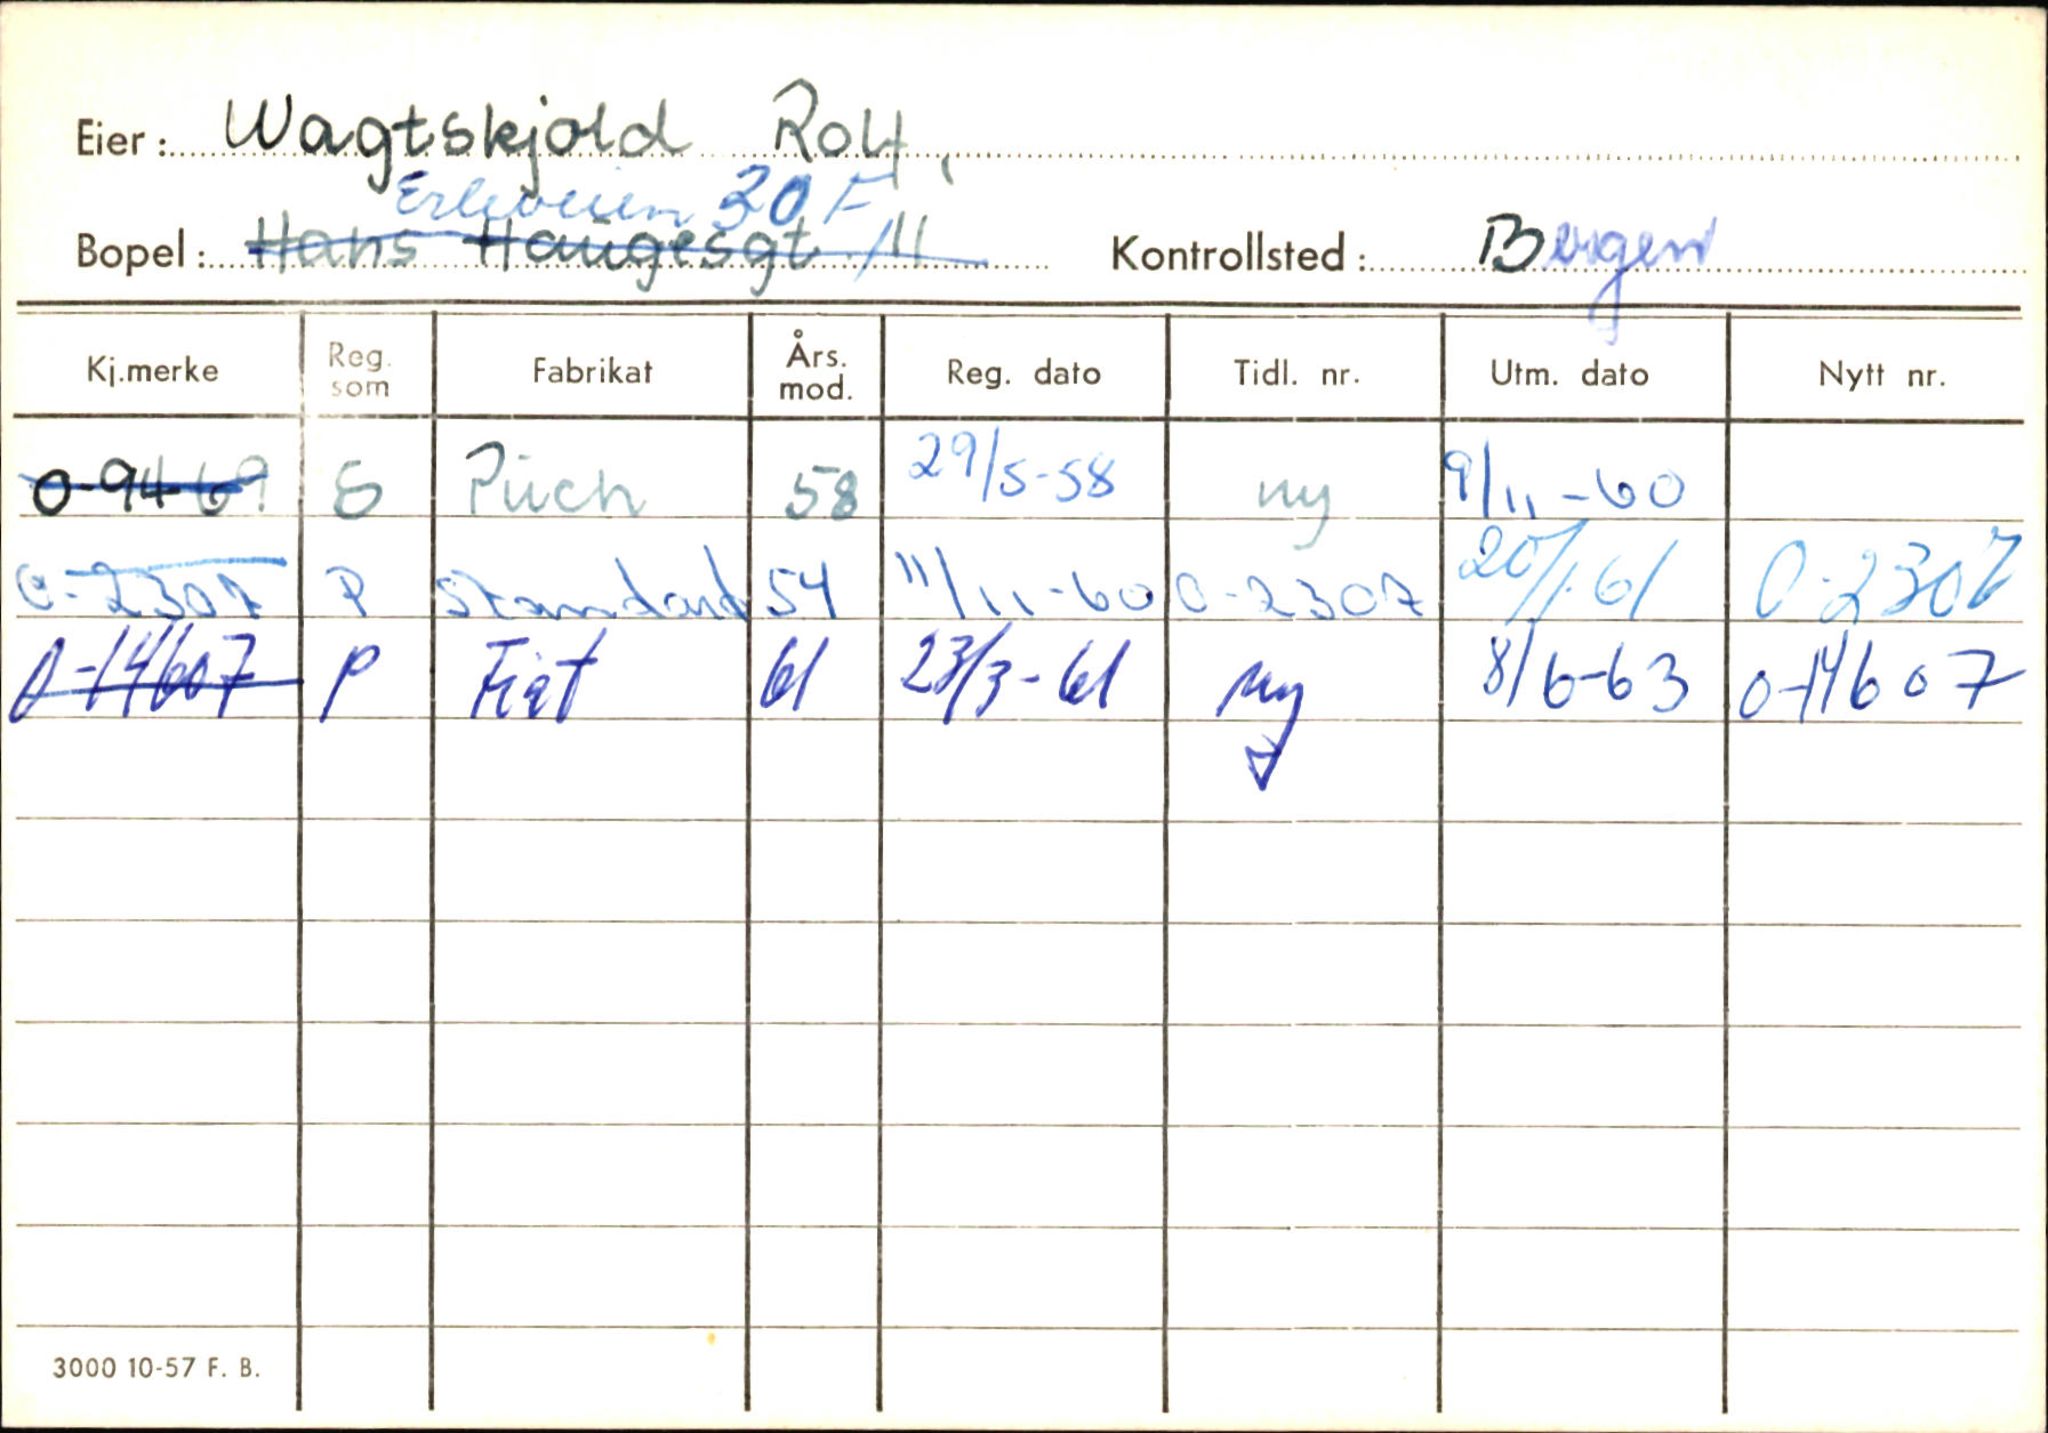 Eier: Wagtskjold Rolf,
Erleveien 30 F
Bopel: Hans Haugesgt. 11 Kontrollsted: Bergen
Kj.merke Reg. som Fabrikat Års. mod. Reg. dato Tidl. nr. Utm. dato Nytt nr.
O-9469 S Püch 58 29/5-58 ny 9/11-60
O-2307 P Standard 54 11/11-60 O-2307 20/1-61 O-2307
O-14607 P Fiat 61 23/3-61 ny 8/6-63 O-14607
3000 10-57 F. B.